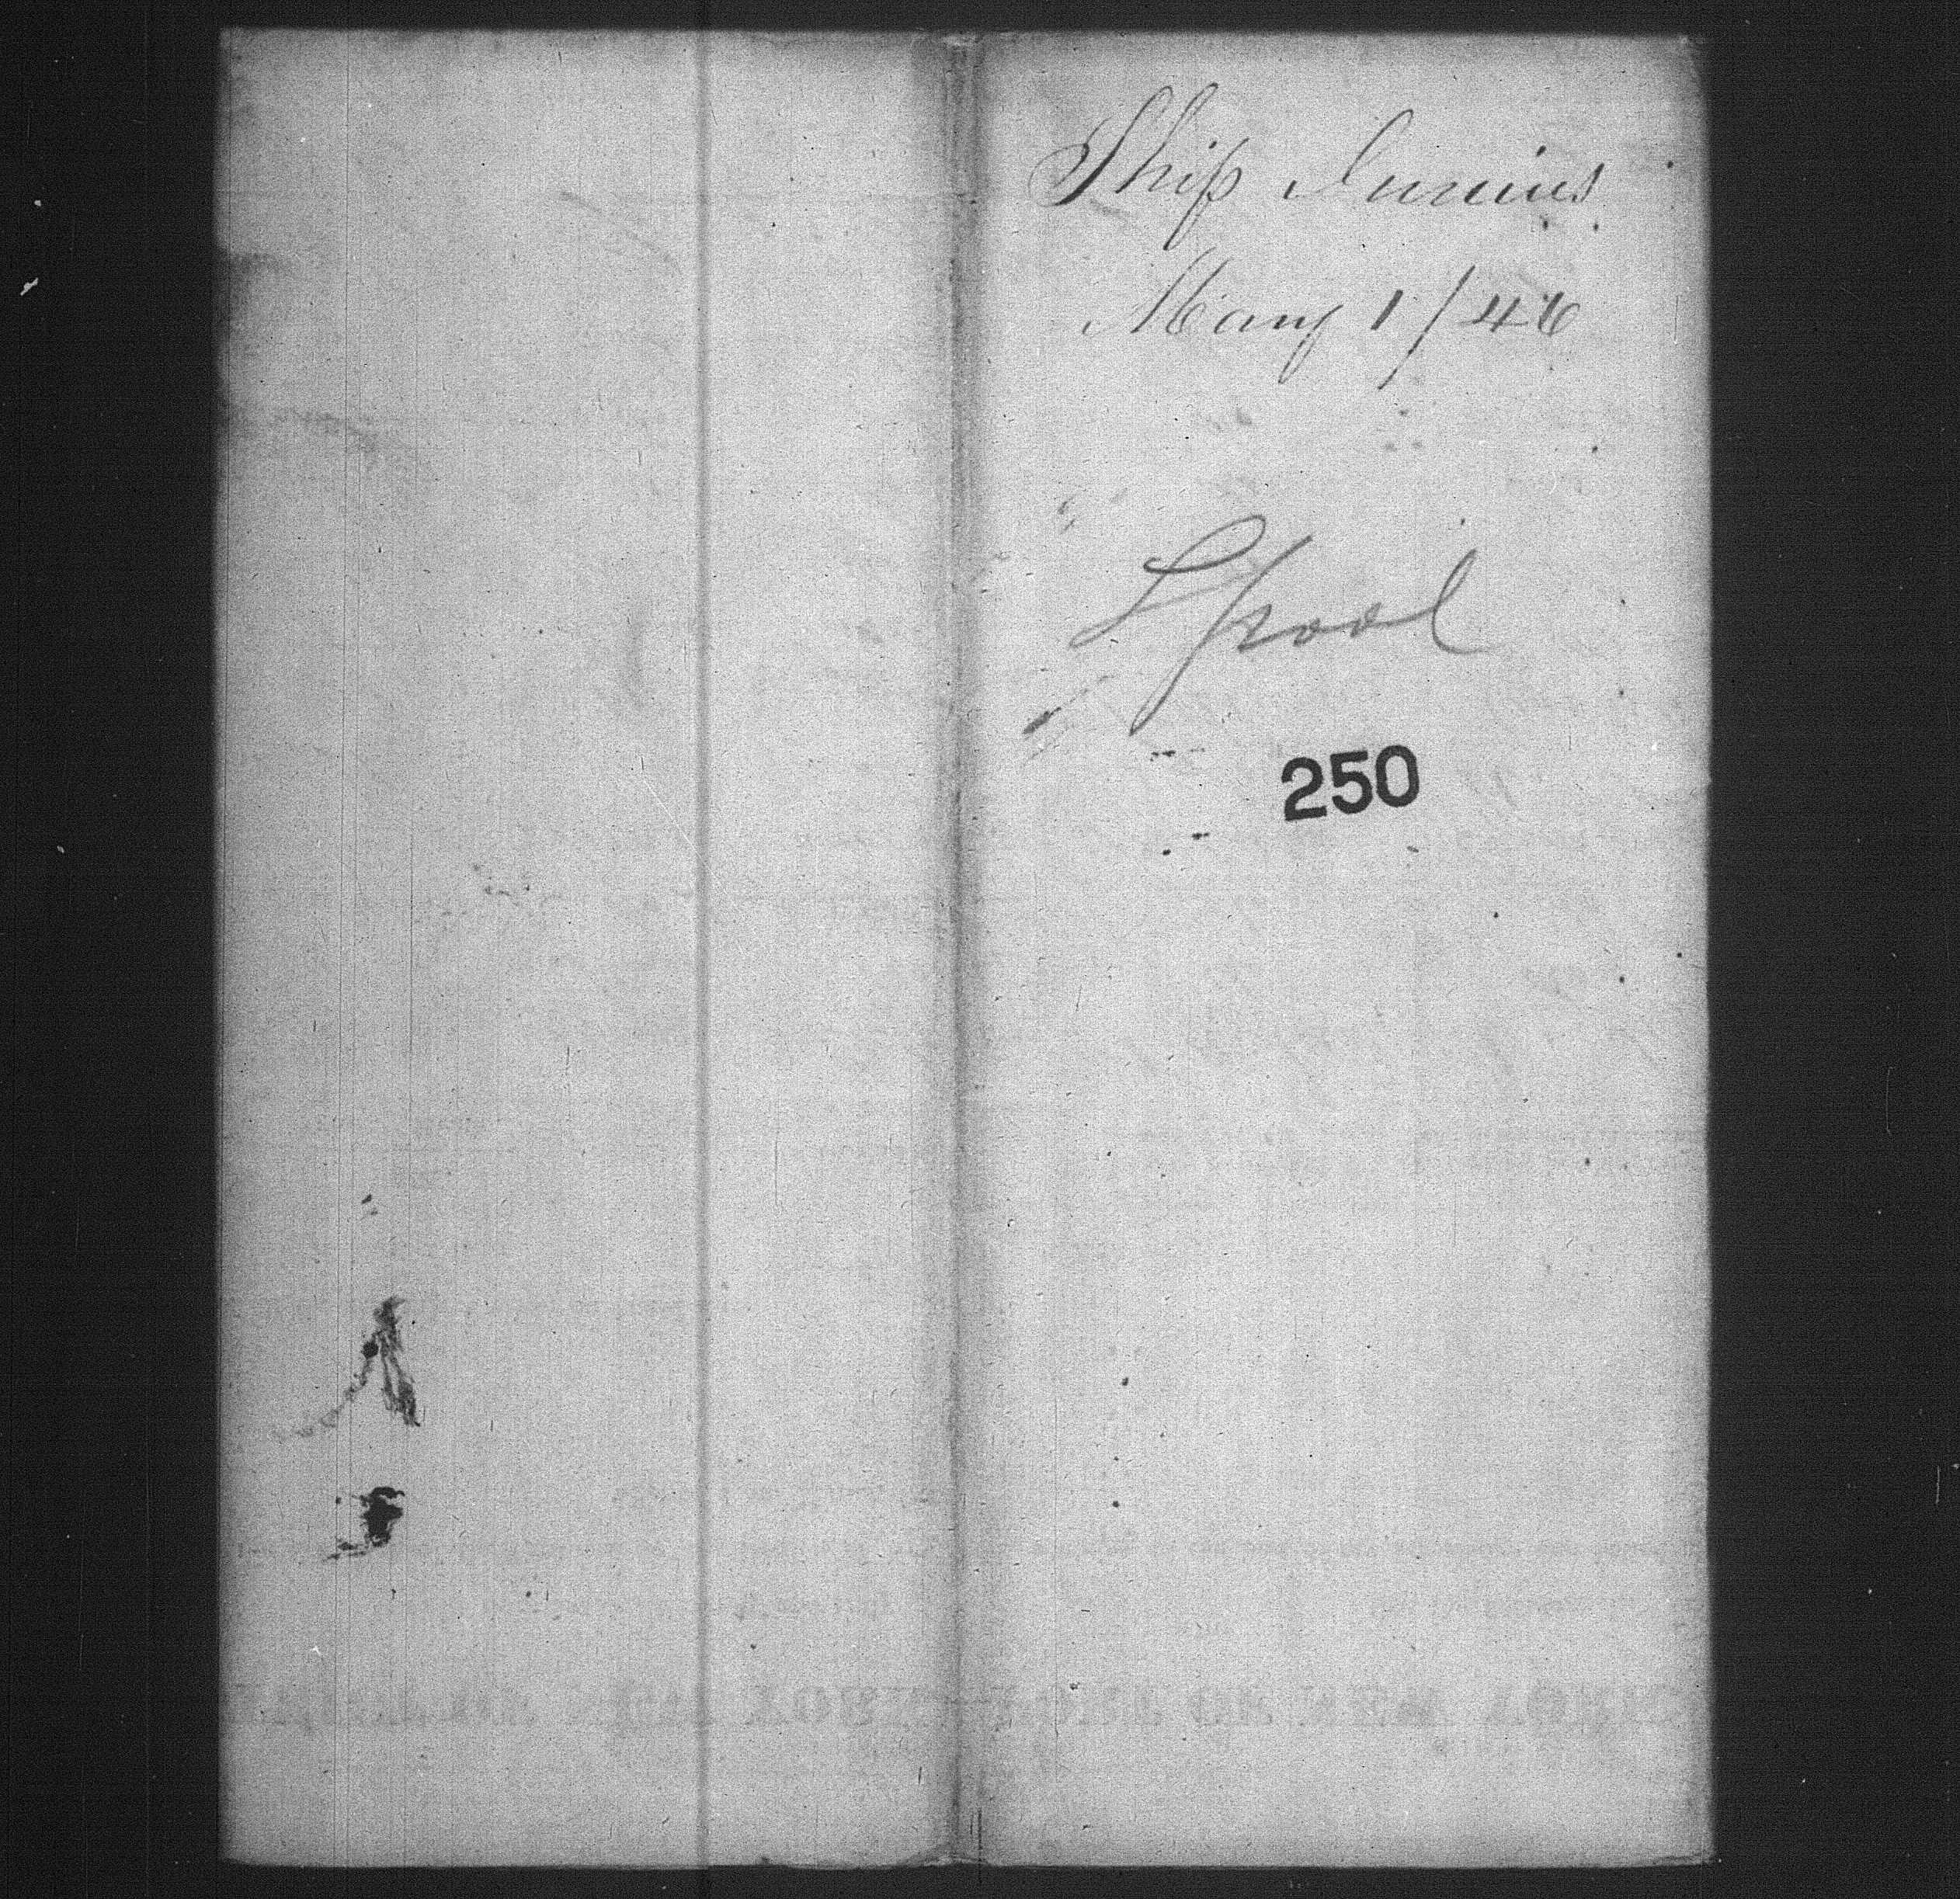 Ship Junius
May 1/46
Lpool
250